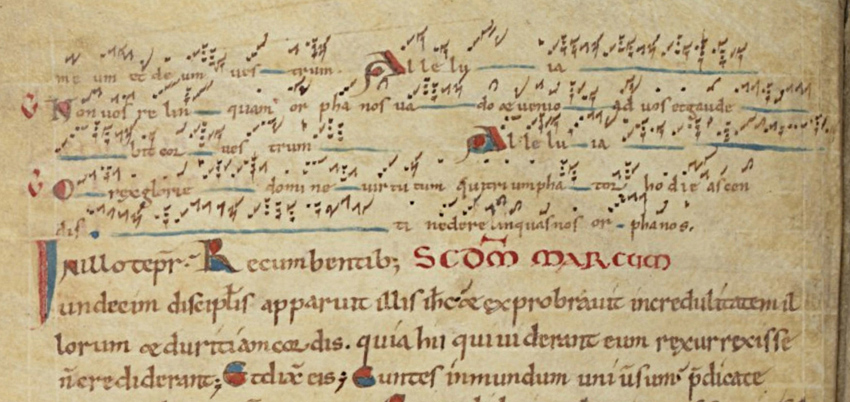 me um et deum ues trum. Alle lu ia
Non uos re lin quam or pha nos ua do & uenio ad uos et gaude
bit cor ues trum Alle lu ia
O rex glorie domi ne uir tu tum qui triumpha tor ho die ascen
dis. ti ne dere linquas nos or phanos.
In illo tēpr. Recumbentib; SCDM MARCUM
undecim discipłis apparuit illis ih̄c & exprobrauit incredulitatem il
lorum & duritiam cordis. quia hii qui uiderant eum rexurrexisse
n̄ crediderant; Et dix̄ eis; Euntes in mundum uniūsum p̄dicate